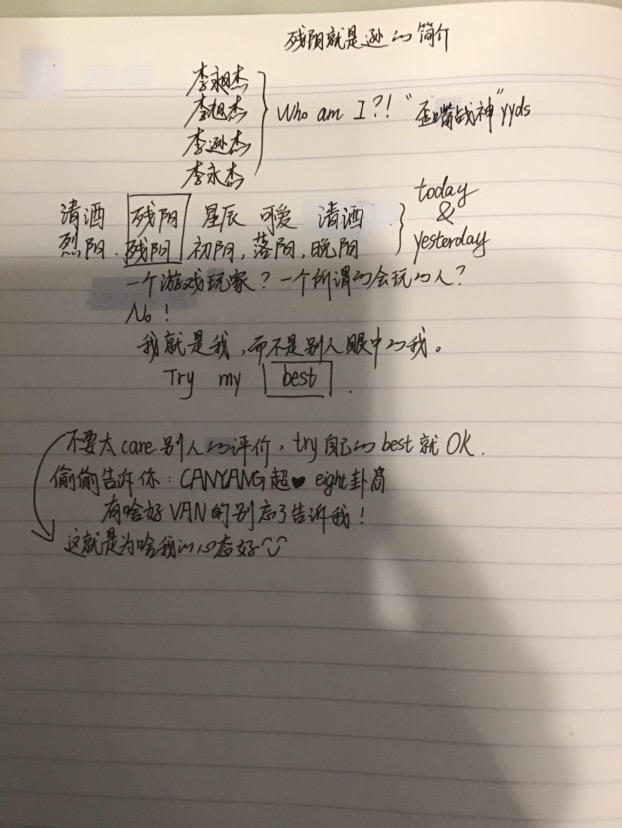 残阳就是逊的简介
李昶杰
李旭杰
李逊杰
李永杰
Who am I?! "歪嘴战神"yyds
清酒 残阳 星辰 可爱 清酒
烈阳.残阳 初阳,落阳,晚阳
today
&
yesterday
一个游戏玩家?一个所谓的会玩的人?
No!
我就是我,而不是别人眼中的我。
Try my best .
不要太care别人的评价,try自己的best就OK.
偷偷告诉你:CANYANG超♥ eight卦
有啥好VAN的别忘了告诉我!
这就是为啥我的心态好